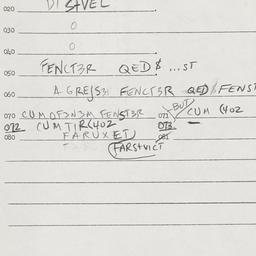 020 DISTVEL
030 0
040 0
050 FENCT3R QED $ ...ST
060 FENCTS3R QED / FENST
070 CUMOT3N3M FENST3R 071 BUT CUM (402
072 CUM TIR(402 073 —
080 FARUXET) 081
FARSTVICT